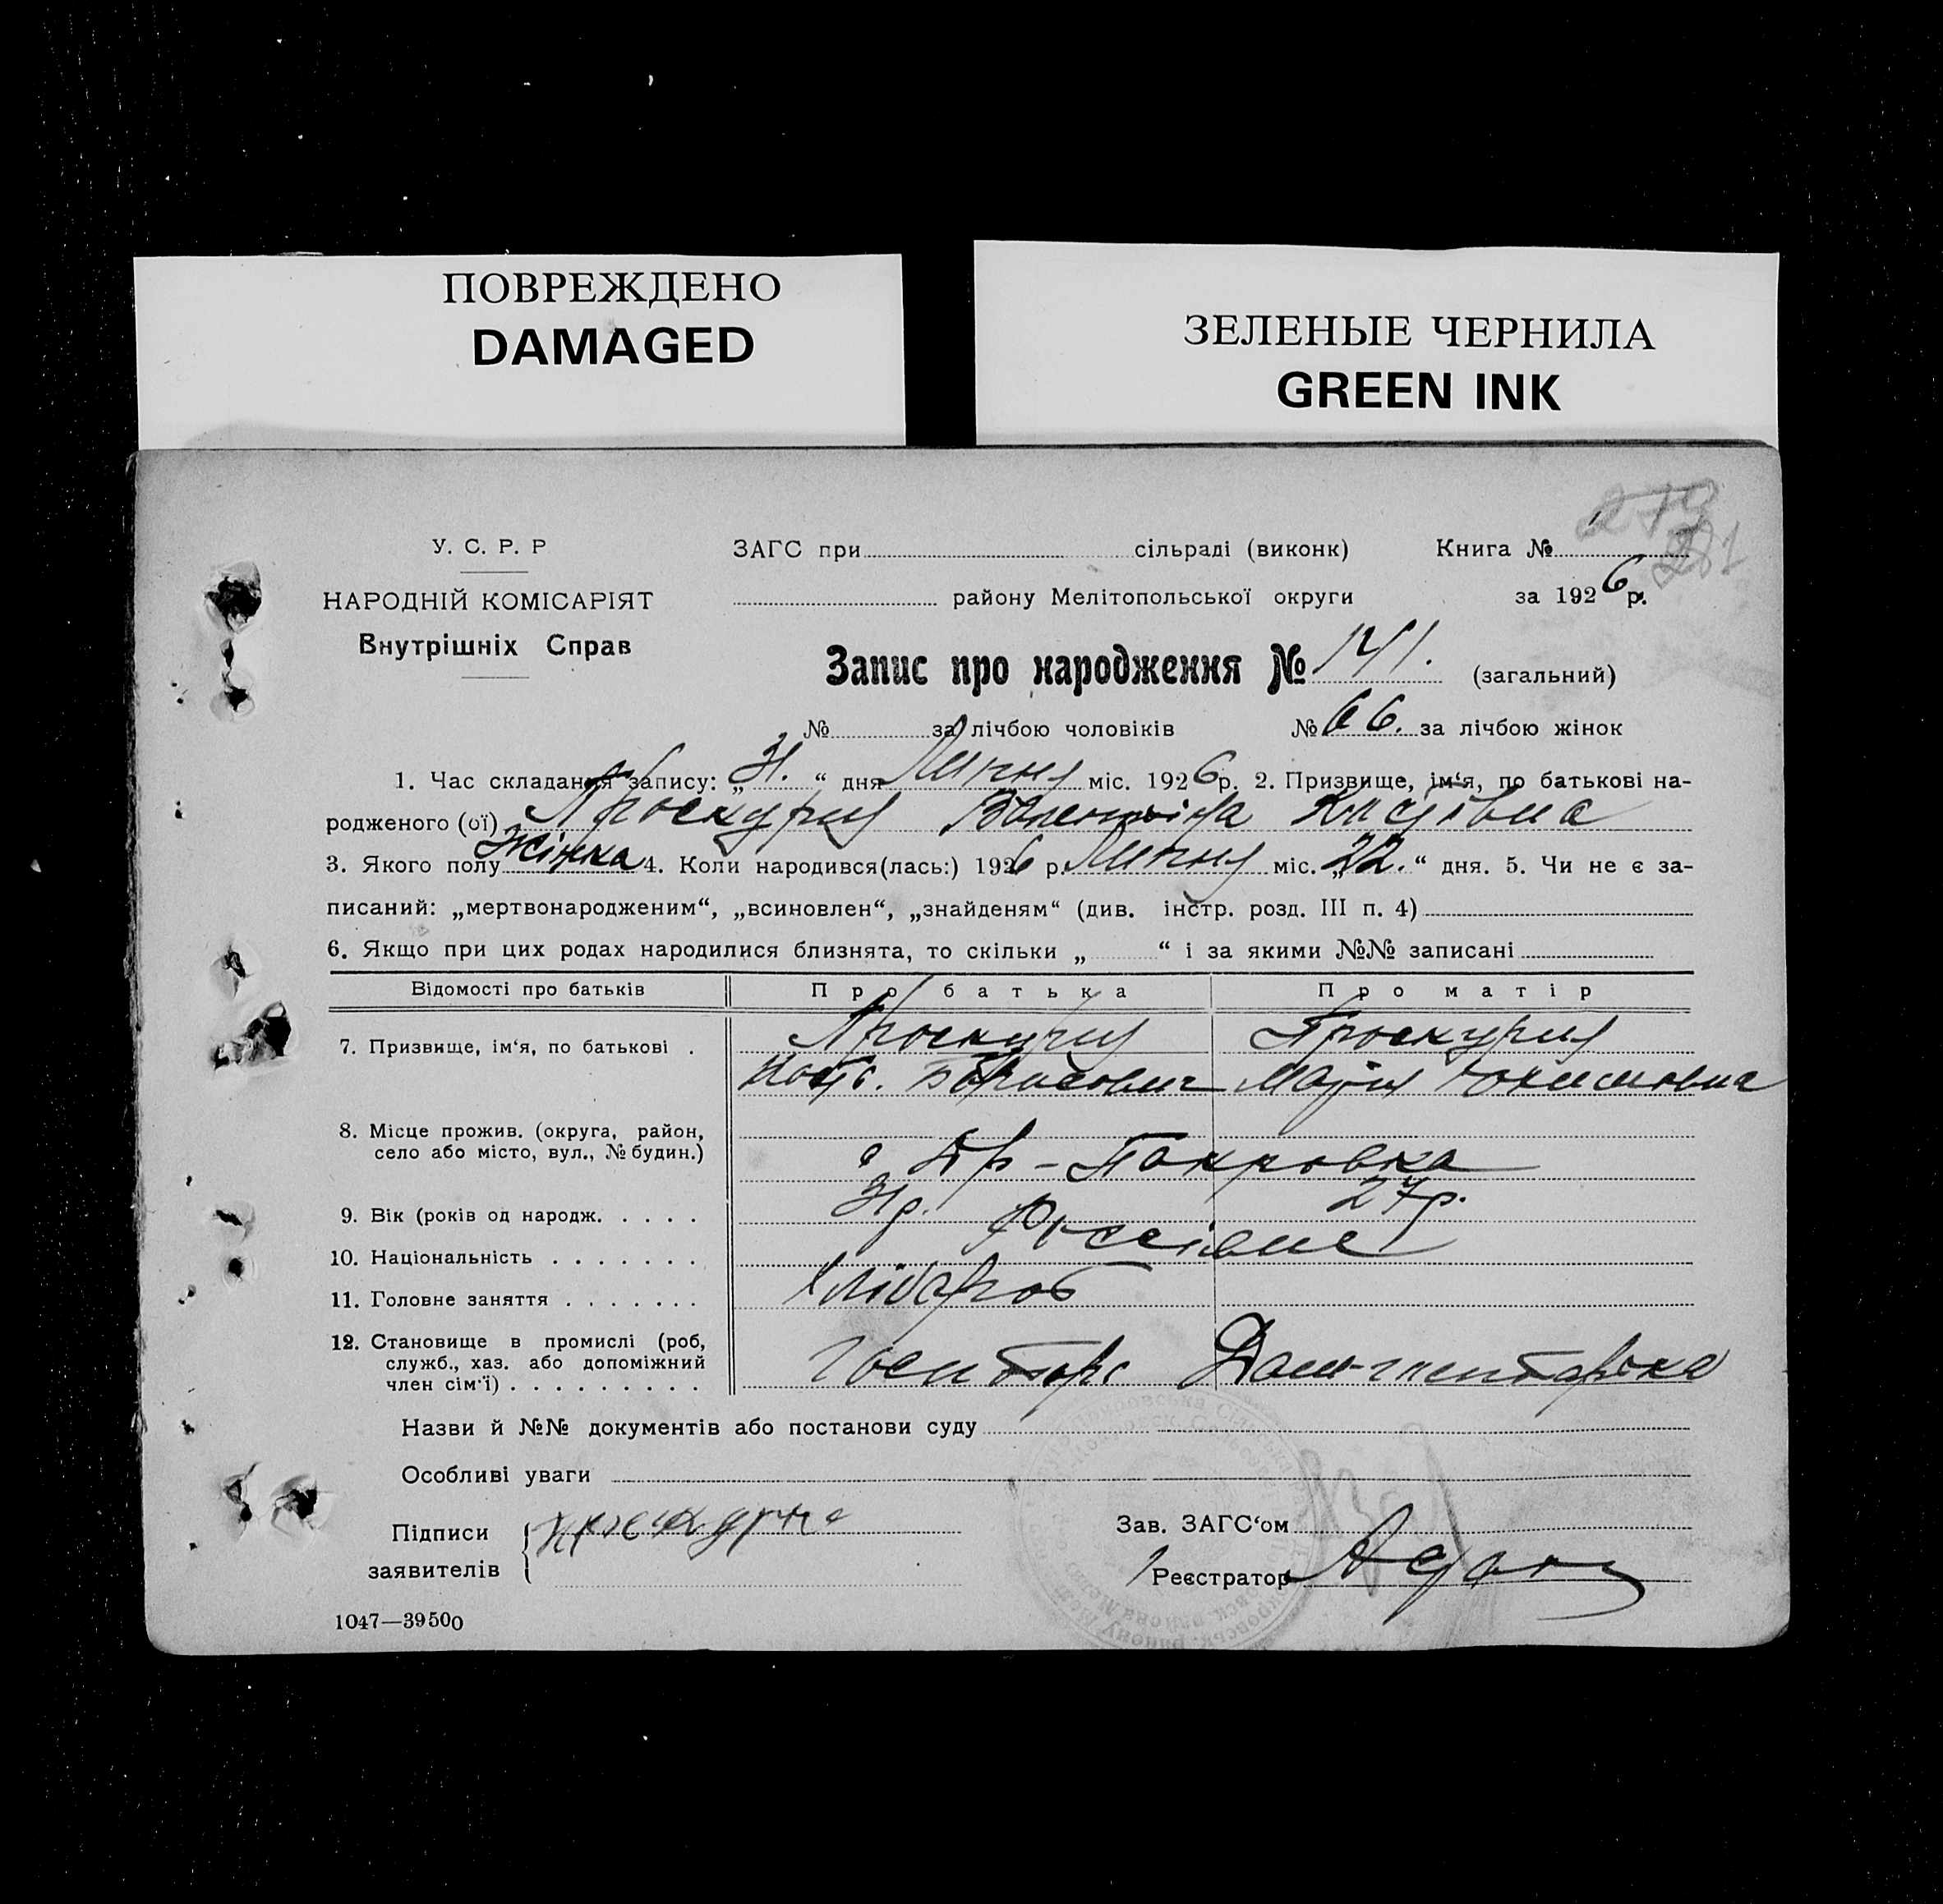 ПОВРЕЖДЕНО
DAMAGED
ЗЕЛЕНЫЕ ЧЕРНИЛА
GREEN INK
279
281
У. С. Р. Р
НАРОДНІЙ КОМІСАРІЯТ
Внутрішніх Справ
ЗАГС при сільраді (виконк) Книга №
району Мелітопольської округи за 1926 р.
Запис про народження № 141. (загальний)
№ за лічбою чоловіків № 66. за лічбою жінок
1. Час складання запису: „31.“ дня Липня міс. 1926 р. 2. Призвище, ім‘я, по батькові на-
родженого (ої) Проскурня Валентіна
3. Якого полу Жінка 4. Коли народився(лась:) 1926 р. Липня міс. „22.“ дня. 5. Чи не є за-
писаний: „мертвонародженим“, „всиновлен“, „знайденям“ (див. інстр. розд. III п. 4)
6. Якщо при цих родах народилися близнята, то скільки „ “ і за якими №№ записані
Відомості про батьків Про батька Про матір
7. Призвище, ім‘я, по батькові . Проскурня Проскурня
Борисович Марія
8. Місце прожив. (округа, район,
село або місто, вул., № будин.) Покровка
9. Вік (років од народж. . . . . 31 р. 27 р.
10. Національність . . . . . . .
11. Головне заняття . . . . . . . Хлібороб
12. Становище в промислі (роб,
служб., хаз. або допоміжний
член сім‘ї) . . . . . . . . .
Назви й №№ документів або постанови суду
Особливі уваги
Підписи
заявителів
Зав. ЗАГС‘ом
Реєстратор
1047—39500